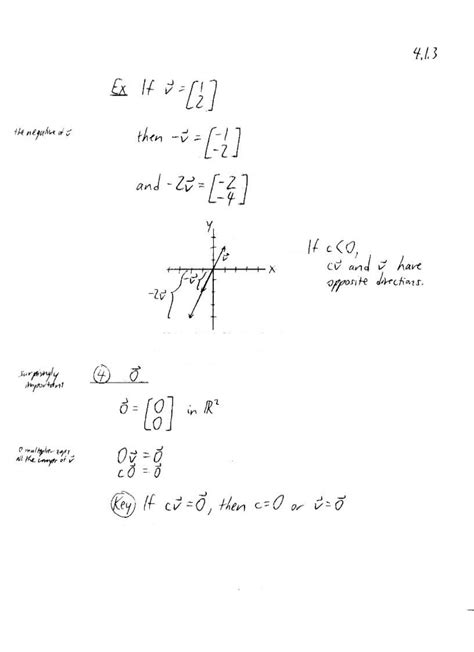 4.1.3
Ex If v⃗ = [1 2]
the negative of v⃗
then -v⃗ = [-1 -2]
and -2v⃗ = [-2 -4]
Y
X
v⃗
-v⃗
-2v⃗
If c<0,
cv⃗ and v⃗ have
opposite directions.
surprisingly
important!
④ 0⃗
0⃗ = [0 0] in ℝ²
0 multiplier
all the
0v⃗ = 0⃗
c0⃗ = 0⃗
Key If cv⃗ = 0⃗, then c=0 or v⃗=0⃗